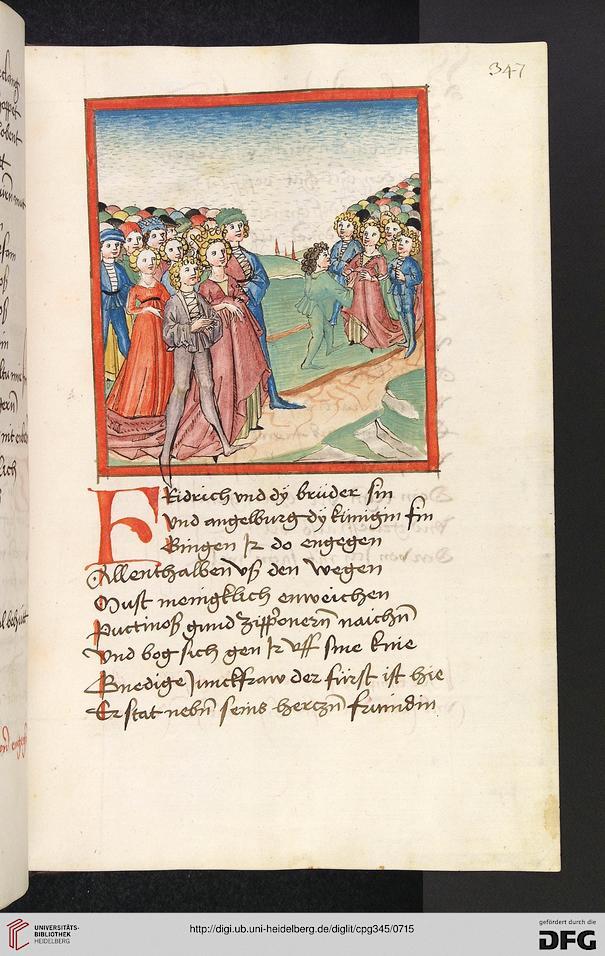 347
FRidrich vnd dÿ brüder sin
Vnd angelburg dÿ kúnigin fin
Gingen Jr do engegen
Allenthalben vß den wegen
Must menigklich entweichen
vnd bog sich gen Jr vff sine knie
Gnedige Junckfraw der fürst ist hie
Er stat nebñ seins hertzñ frúndin
UNIVERSITÄTS-
BIBLIOTHEK
HEIDELBERG
http://digi.ub.uni-heidelberg.de/diglit/cpg345/0715
gefördert durch die
DFG